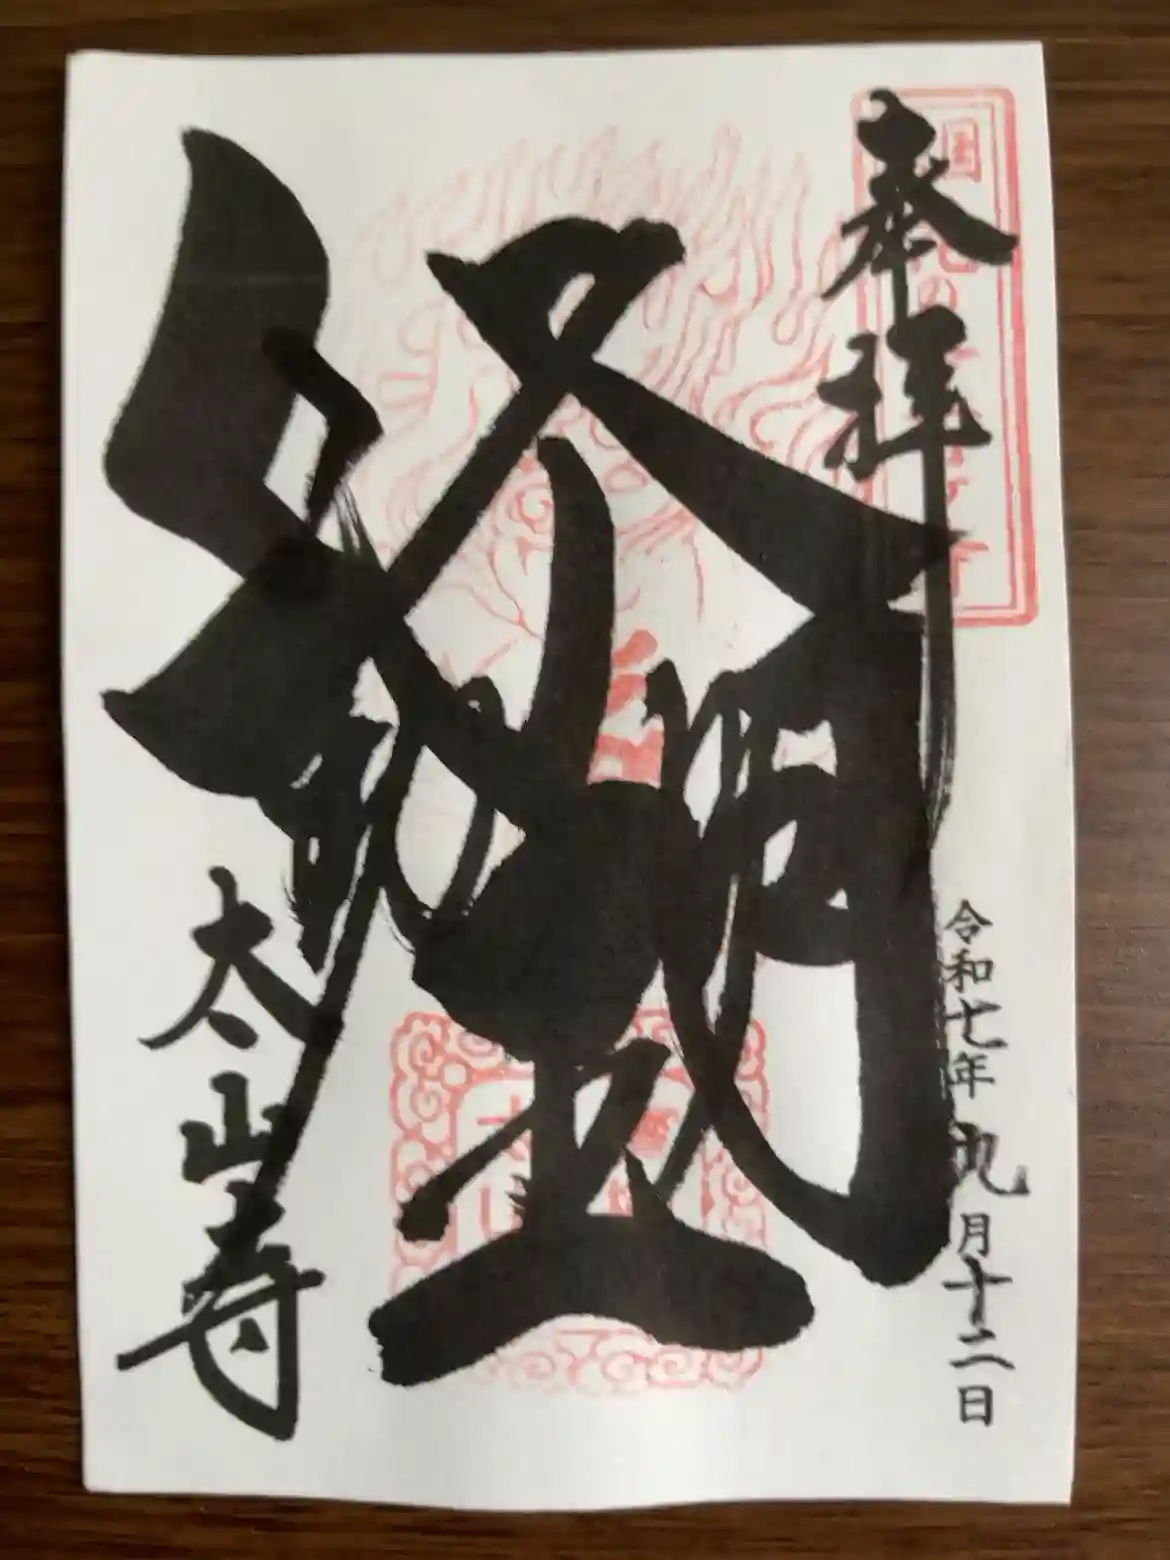 奉拝
令和七年九月十二日
納経
太山寺